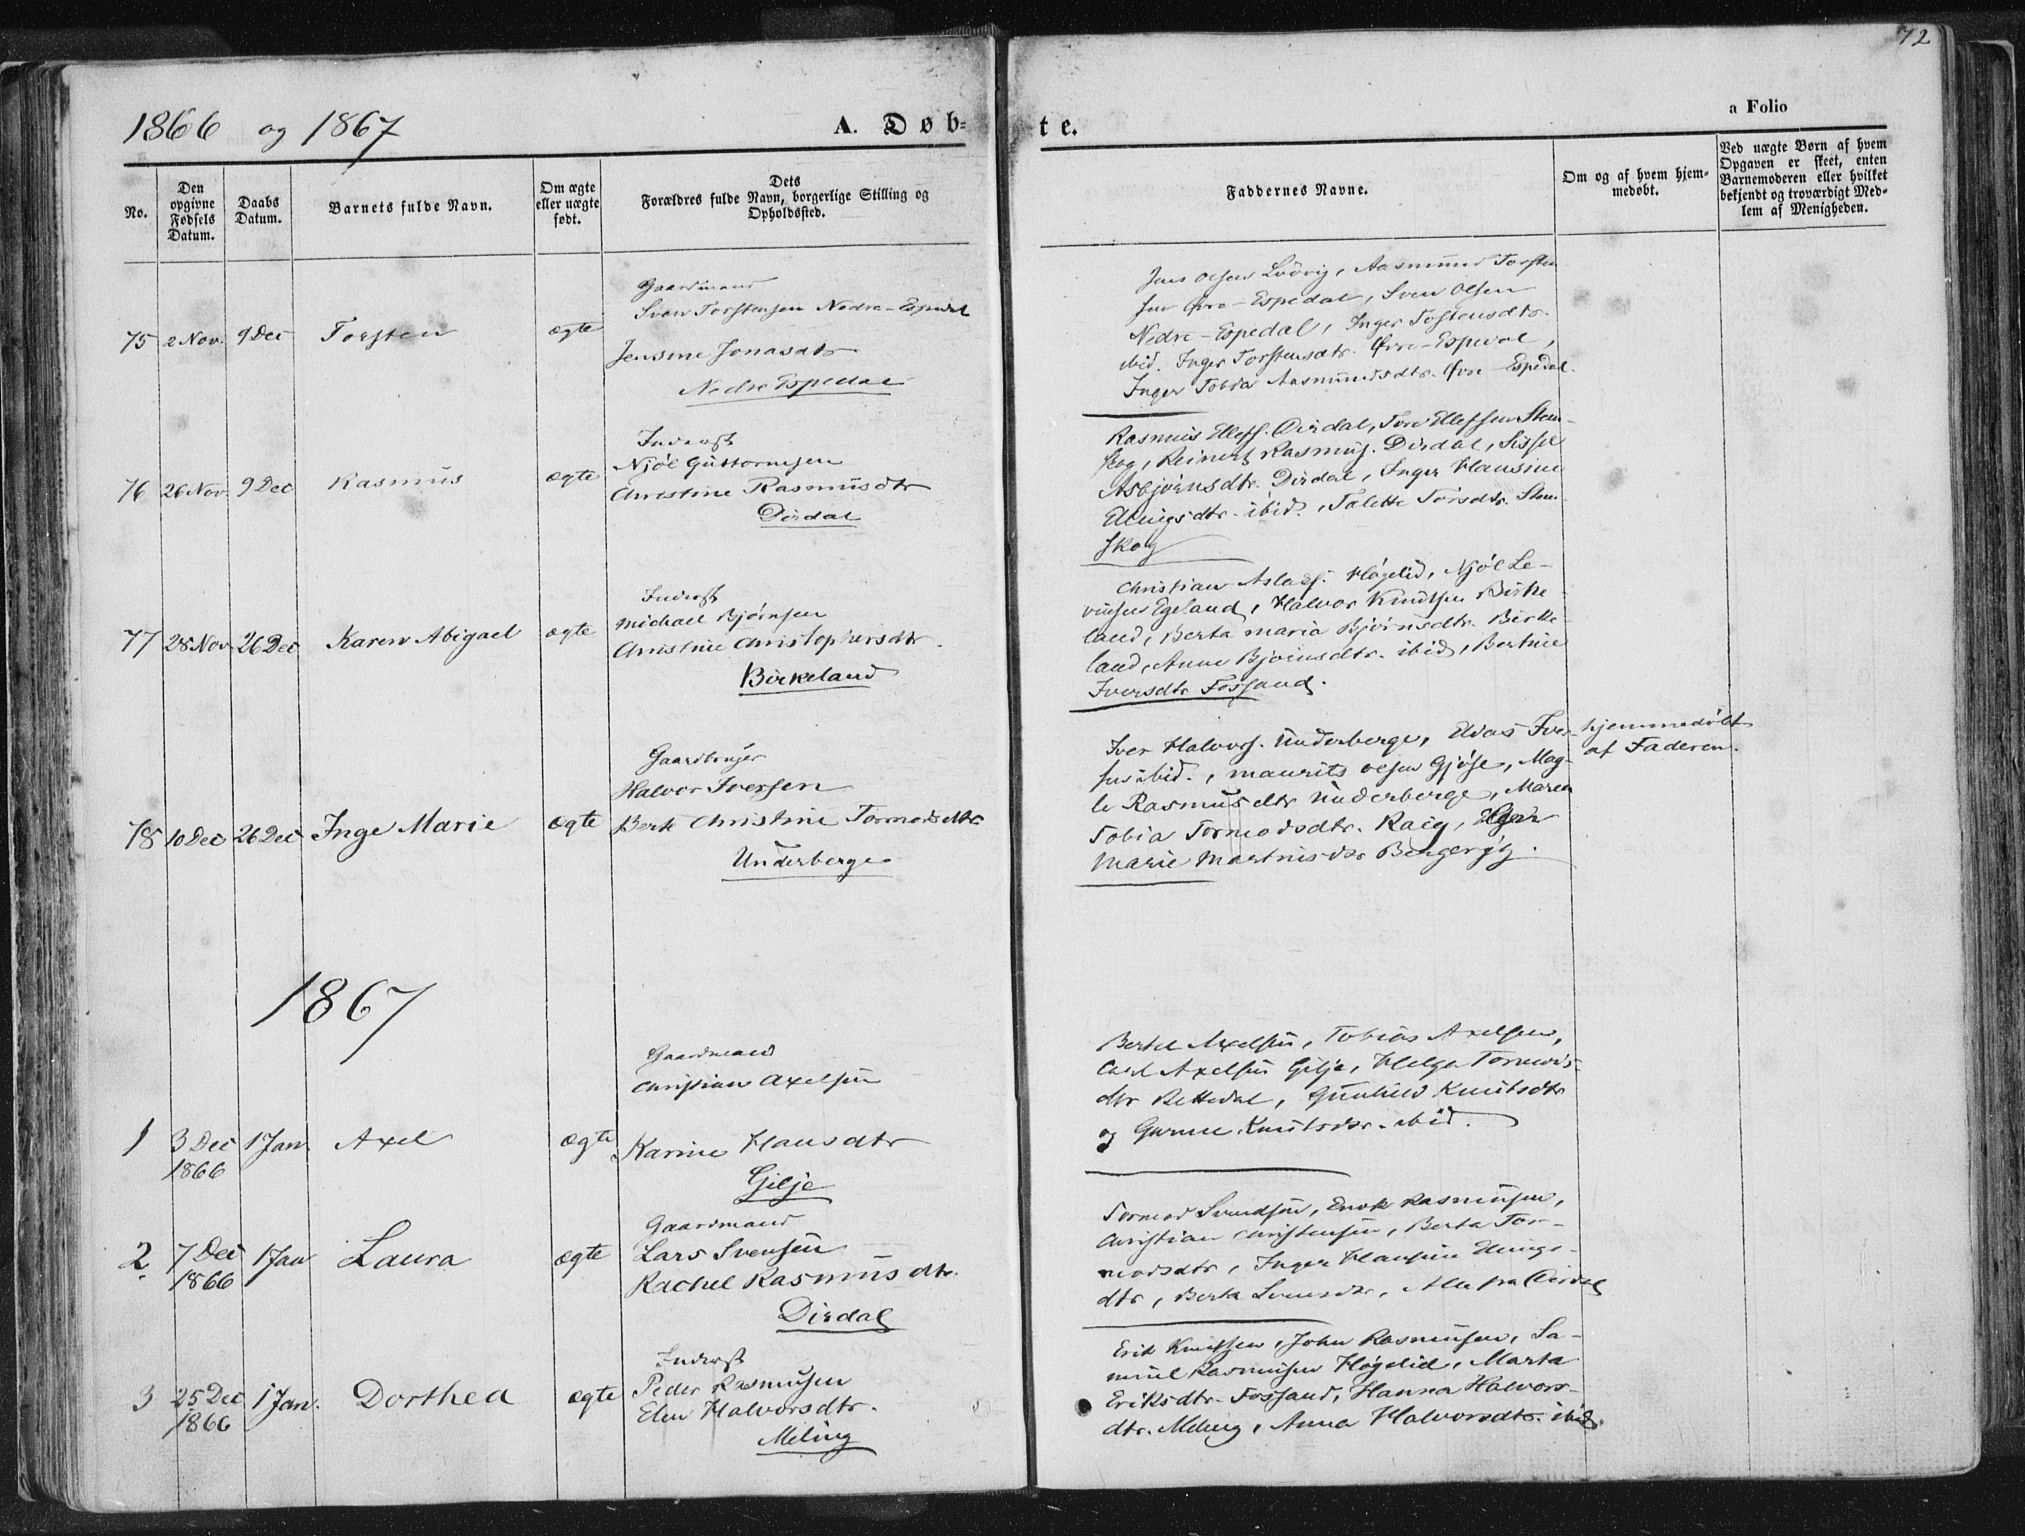 72
1866 og 1867
A. Døb=
te.
a Folio
No.
Den opgivne Fødsels Datum.
Daabs Datum.
Barnets fulde Navn.
Om ægte eller uægte født.
Dets Forældres fulde Navn, borgerlige Stilling og Opholdssted.
Faddernes Navne.
Om og af hvem hjemmedøbt.
Ved uægte Børn af hvem Opgaven er skeet, enten Barnemoderen eller hvilket bekjendt og troværdigt Medlem af Menigheden.
75 2 Nov. 9 Dec Torsten ægte
Gaardmand
Sven Torstensen Nedre-Espedal
Jensine Jonasdtr
Nedre Espedal
Jens Olsen Ludvig, Aasmund Torsten
sen Øvre-Espedal, Sven Olsen
Nedre-Espedal, Inger Tostensdtr.
ibid. Inger Torstensdtr. Øvre-Espedal,
Inger Tobia Aasmundsdtr. Øvre-Espedal.
76 26 Nov. 9 Dec Rasmus ægte
Inderst
Njøl Guttormsen
Christine Rasmusdtr
Dirdal
Rasmus Ellefs. Dirdal, Tore Ellefsen Sten-
skog, Reinert Rasmus. Dirdal, Sissel
Asbjørnsdtr. Dirdal, Inger Hansine
Ellingsdtr. ibid., Talette Toresdtr. Sten-
skog
77 28 Nov. 26 Dec Karen Abigael ægte
Inderst
Michael Bjørnsen
Christine Christophersdtr.
Birkeland
Christian Aslags. Høgelid, Njøl Le-
vinsen Egeland, Halvor Knudsen Birke
land, Berta Maria Bjørnsdtr. Birke-
land, Anne Bjørnsdtr. ibid, Bertine
Iversdtr Fossand.
78 10 Dec 26 Dec Inge Marie ægte
Gaardbruger
Halvor Iversen
Berte Christine Tormodsdtr
Underberge
Iver Halvors. Underberge, Elias Iver-
sen ibid., Maurits Olsen Gjøse, Mag-
le Rasmusdtr Underberge, Maren
Tobia Tormodsdtr. Raig,
Marie Martinsdtr
hjemmedøbt
af Faderen.
1867
1 3 Dec 1866 1 Jan. Axel ægte
Gaardmand
Christian Axelsen
Karine Hansdtr
Gilje
Bertel Axelsen, Tobias Axelsen,
Carl Axelsen Gilje, Helga Tormods-
dtr Bettedal, Gunhild Knutsdtr
og Gurine Knutsdtr. ibid.
2. 7 Dec 1866 1 Jan Laura ægte
Gaardmand
Lars Svensen
Rachel Rasmusdtr.
Dirdal
Tormod Svendsen, Enok Rasmusen,
Christian Christensen, Berta Tor-
modsdtr, Inger Hansine Ellings-
dtr, Berta Svensdtr, Alle fra Dirdal
3 25 Dec 1866 1 Jan. Dorthea ægte
Inderst
Peder Rasmusen
Elen Halvorsdtr.
Meling
Erik Knutsen, John Rasmusen, Sa-
muel Rasmusen Høgelid, Marta
Eriksdtr. Fossand, Hanna Halvors-
dtr. Meling, Anna Halvorsdtr. ibid.